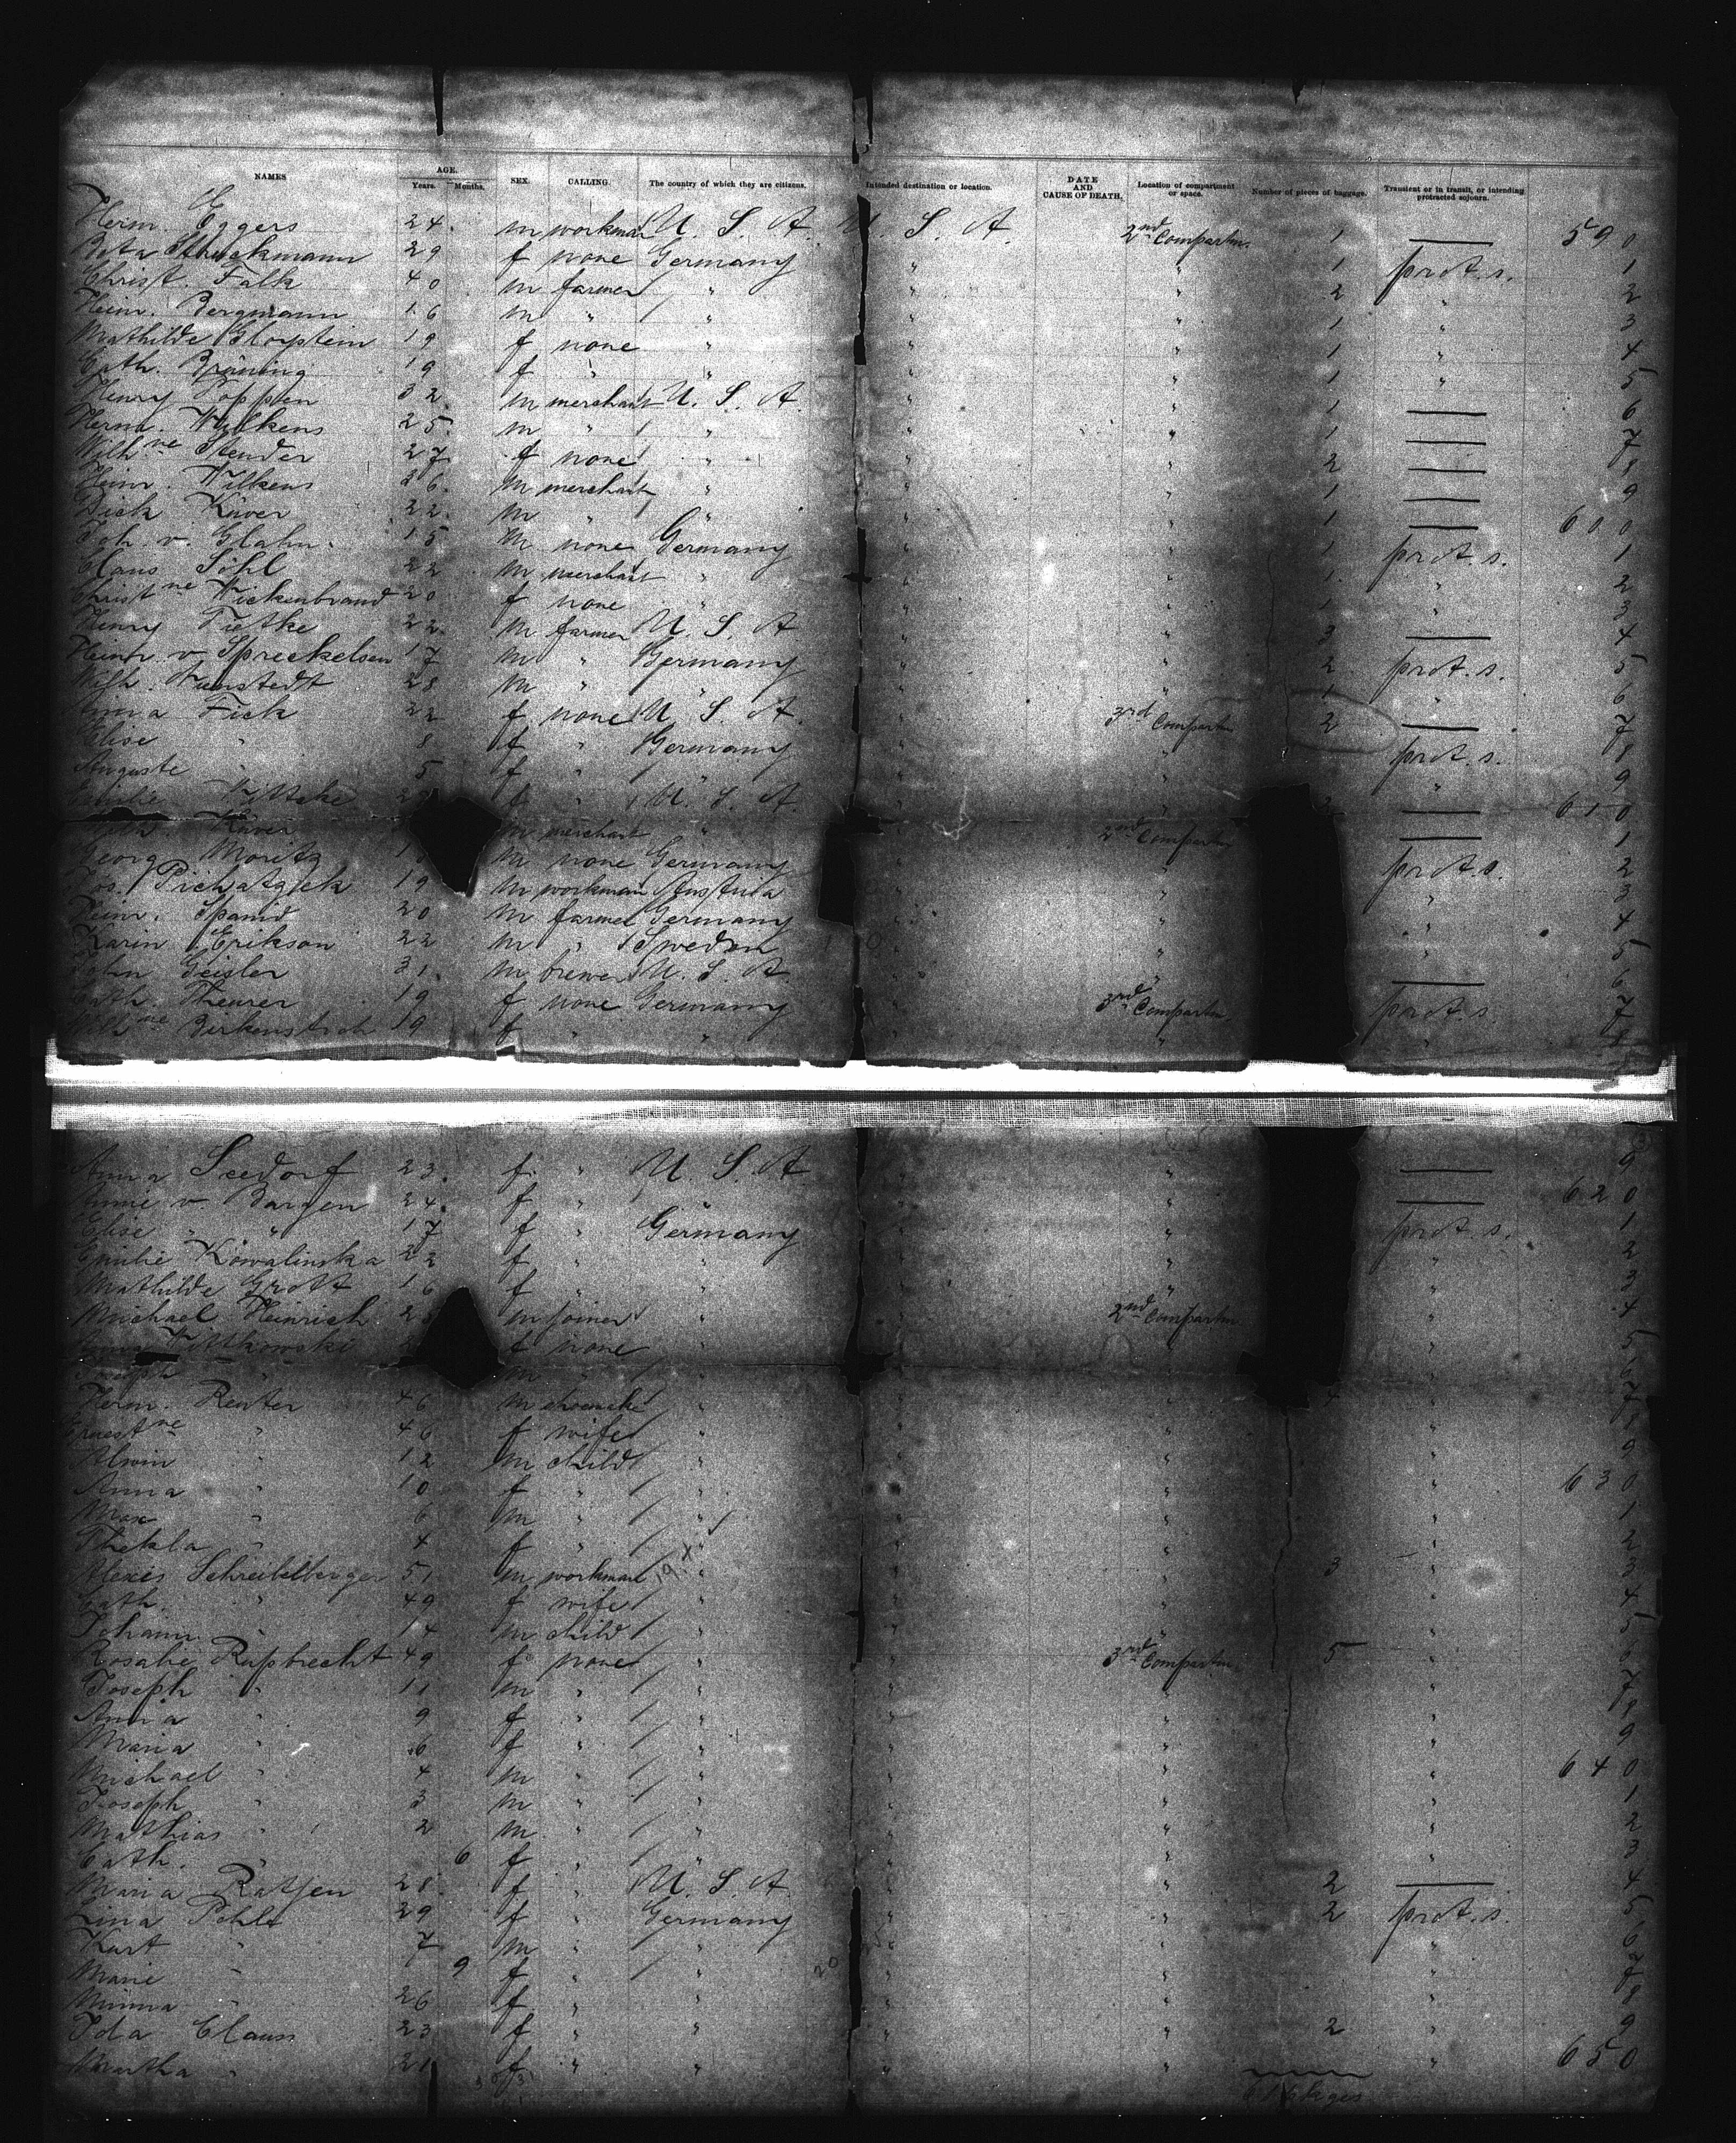 NAMES AGE. Years. Months. SEX. CALLING. The country of which they are citizens. Intended destination or location. DATE AND CAUSE OF DEATH. Location of compartment or space. Number of pieces of baggage. Transient or in transit, or intending protracted sojourn.
Herm. Eggers 24. m workman U. S. A. U. S. A. 2nd Compartm. 1 — 590
Beta 29 f none Germany " " 1 prot. s. 1
Christ. Falk 40 m farmer " " " 2 " 2
Heinr. Bergmann 16 m " " " " 1 " 3
Mathilde Gloystein 19 f none " " " 1 " 4
Cath. Brüning 19 f " " " " 1 " 5
Henry Toppen 32. m merchant U. S. A. " " 1 — 6
Herm. Wilkens 25. m " " " " 1 — 7
Wilhne Stender 27 f none " " " 2 — 8
Heinr. Wilkens 26. m merchant " " " 1 — 9
Dick Käver 22. m " " " " 1 — 600
Joh. v. Glahn. 15 m none Germany " " 1 prot. s. 1
Claus Sihl 22 m merchant " " " 1. " 2
Christne Wickenbrand 20 f none " " " 1 " 3
Henry Tietke 22. m farmer U. S. A " " 3 — 4
Heinr. v. Spreckelsen 17 m " Germany " " 2 prot. s. 5
Wilh. 28 m " " " " 1 " 6
Anna Fick 22 f none U. S. A. " 3rd Compartm 2 — 7
Elise " 8 f " Germany " " prot. s. 8
Auguste " 5 f " " " " " 9
Wittcke f " U. S. A. " " — 610
Käver m merchant " " 2nd Compartm — 1
Georg Moritz m none Germany " " prot. s. 2
Jos. Pichatzek 19 m workman Austria " " " 3
Heinr. Spanid 20 m farmer Germany " " " 4
Karin Erikson 22 m " Sweden " " 5
John Geisler 31. m brewer U. S. A. " " — 6
Cath. Theurer 19 f none Germany " 3rd Compartm. prot. s. 7
Wilhne Birkenstock 19 f " " " " " 8
Anna Seedorf 23. f. " U. S. A " " — 9
Annie v. Bargen 24. f " " " " — 620
Elise " " 17 f " Germany " " prot. s. 1
Emilie Kowalinska 22 f " " " " " 2
Mathilde Grott 16 f " " " " " 3
Michael Heinrich m joiner " " 2nd Compartm " 4
Wittkowski f none " " " " 5
Joseph " m " " " " "
Herm. Reuter 46 m shoemaker " " " " 7
Ernestne " 46 f wife " " " " 8
Alwin " 12 m child " " " " 9
Anna " 10 f " " " " " 630
Max " 6 m " " " " " 1
Thekla " 4 f " " " " " 2
Alexis Schreibelberger 51 m workman " " " 3 " 3
Cath. " 49 f wife " " " " 4
Johann " 14 m child " " " " 5
Rosalie Rupbrecht 49 f none " " 3rd Compartm. 5 " 6
Joseph " 11 m " " " " " 7
Anna " 9 f " " " " " 8
Maria " 6 f " " " " " 9
Michael " 4 m " " " " " 640
Joseph " 3 m " " " " " 1
Mathias " 2 m " " " " " 2
Cath. " 6 f " " " " " 3
Maria Ratjen 28. f " U. S. A " " 2 — 4
Lina Pohle 29 f " Germany " " 2 prot. s. 5
Kurt " 7 m " " " " " 6
Marie " 9 f " " " " " 7
Minna " 26 f " " " " " 8
Ida Clauss 23 f " " " " 2 " 9
Martha " 21 f " " " " " 650